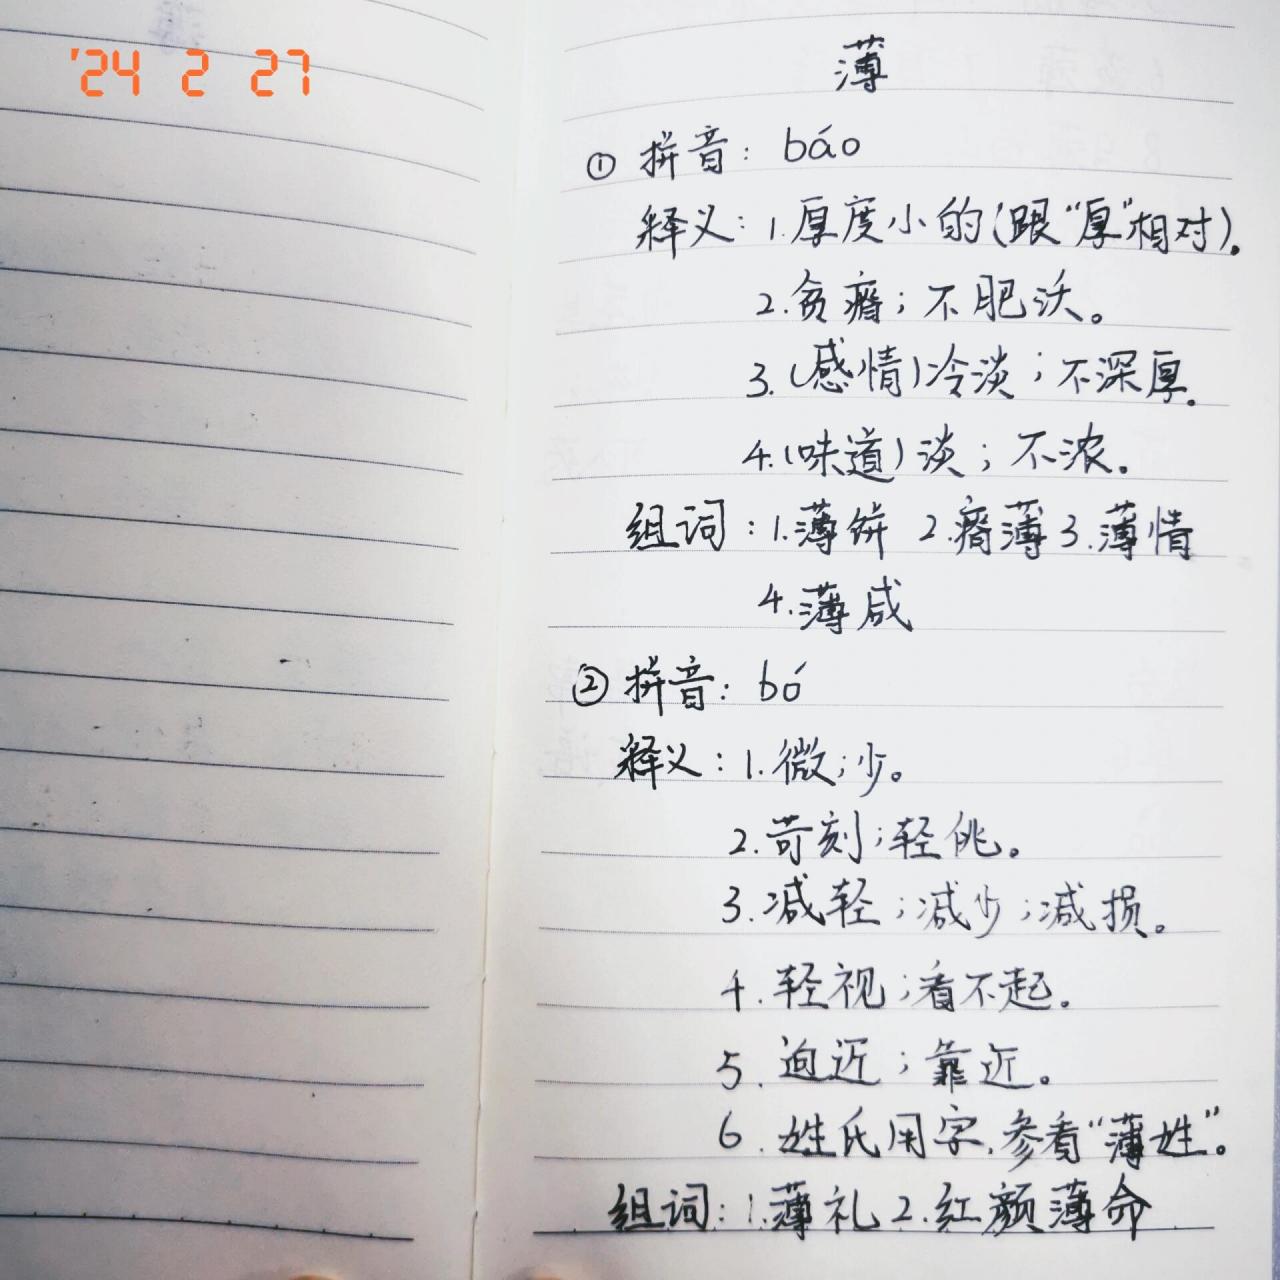 '24 2 27
薄
① 拼音：báo
释义：1.厚度小的(跟“厚”相对)。
2.贫瘠；不肥沃。
3.(感情)冷淡；不深厚。
4.(味道)淡；不浓。
组词：1.薄饼 2.瘠薄 3.薄情
4.薄咸
② 拼音：bó
释义：1.微；少。
2.苛刻；轻佻。
3.减轻；减少；减损。
4.轻视；看不起。
5.迫近；靠近。
6.姓氏用字，参看“薄姓”。
组词：1.薄礼 2.红颜薄命